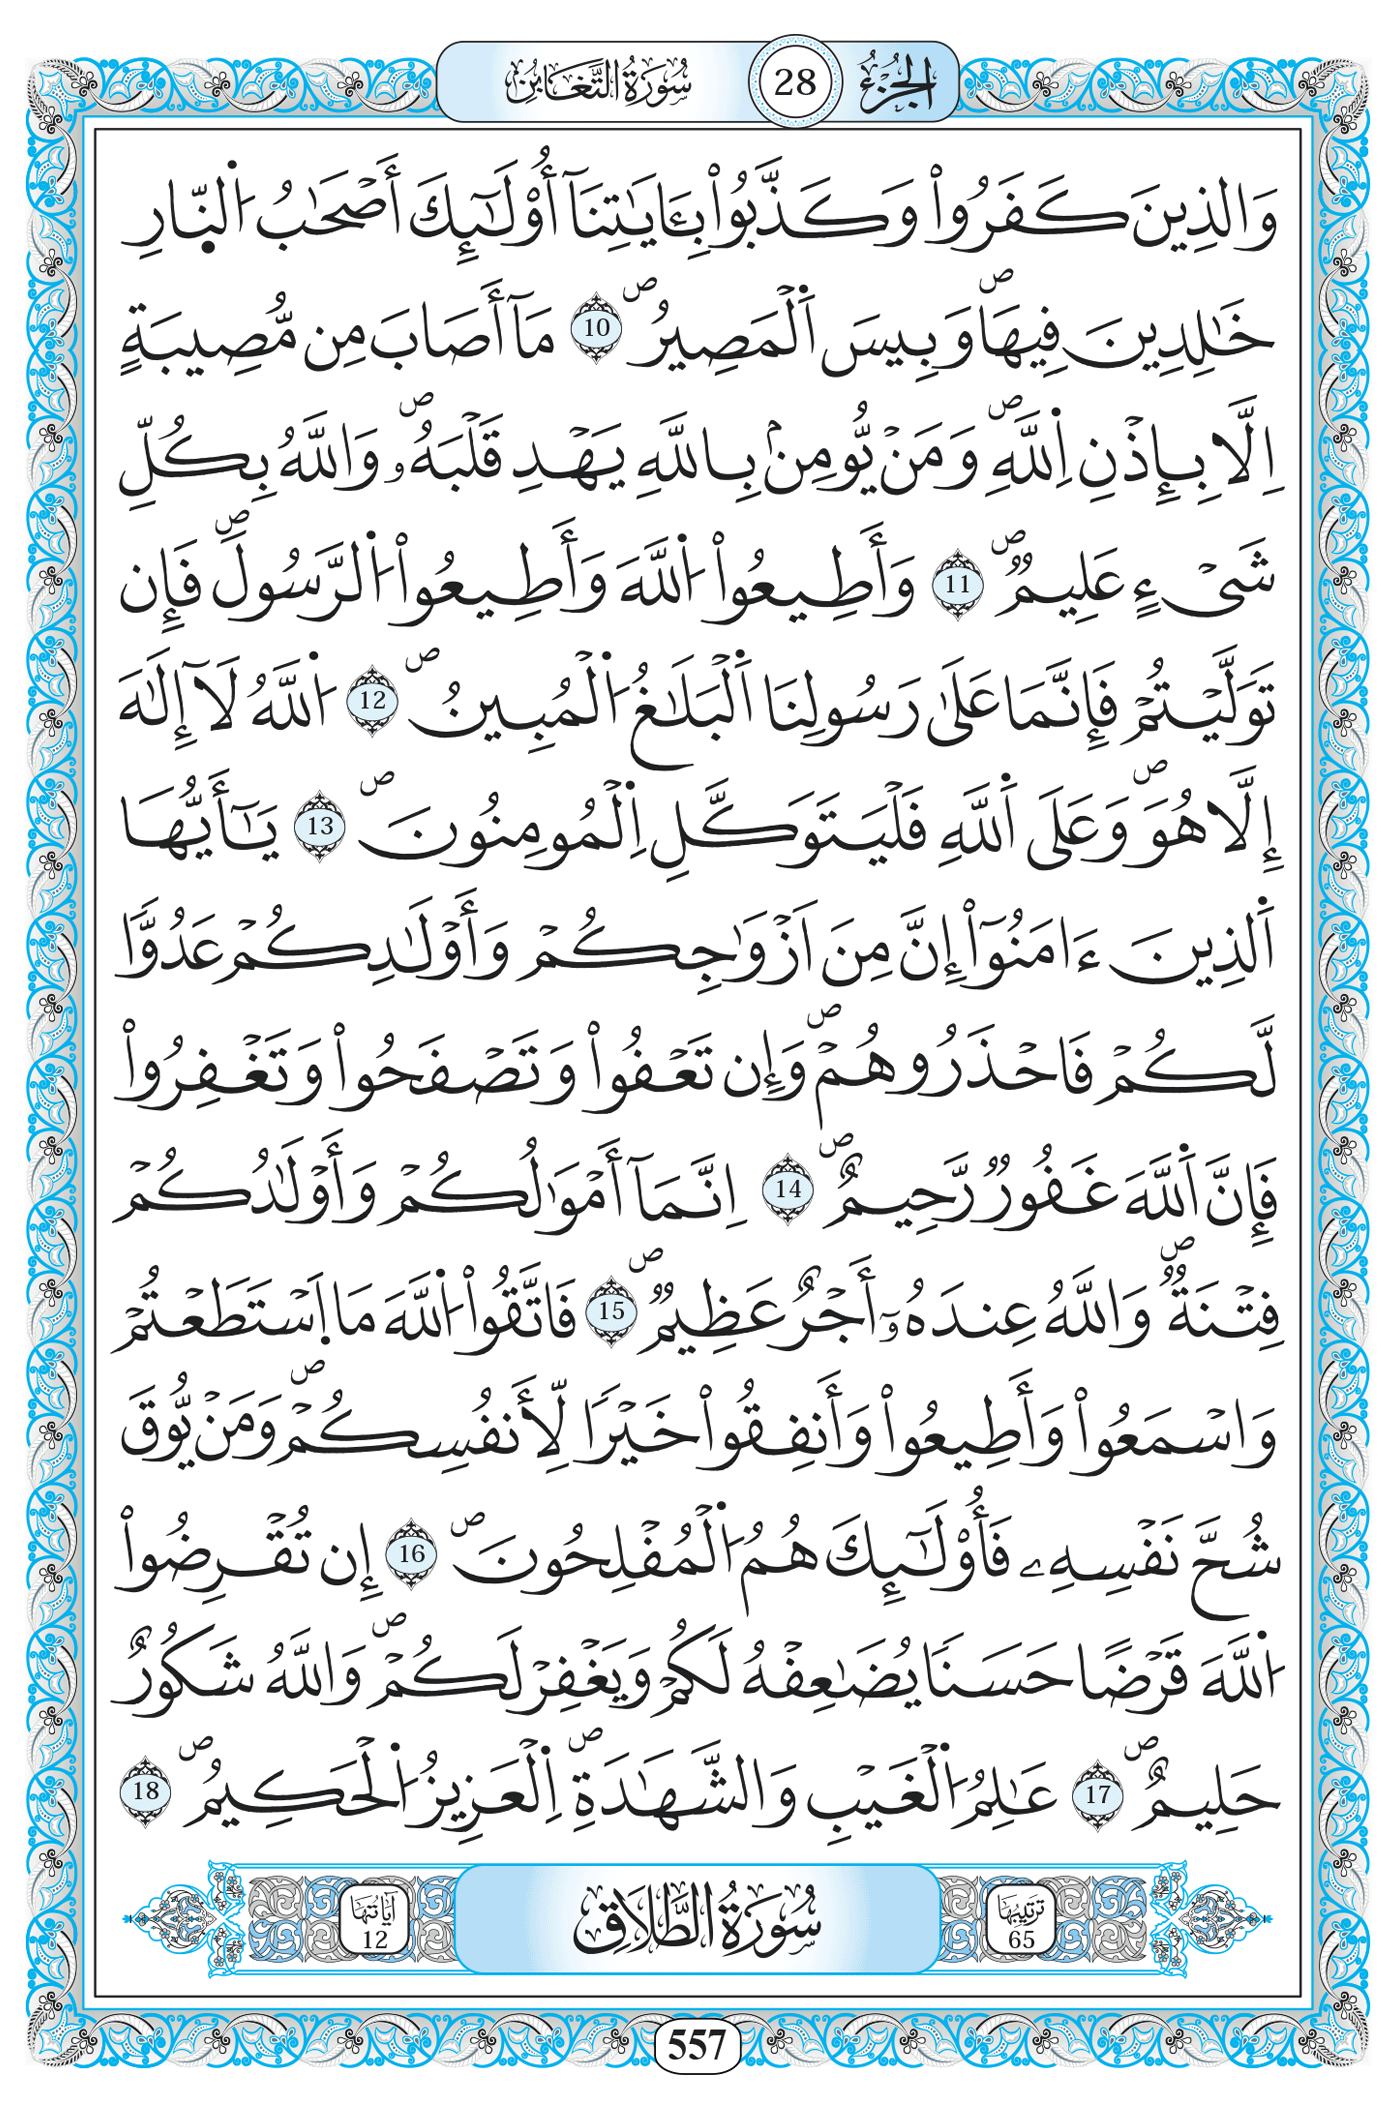 الجزء 28 سورة التغابن
وَالذِينَ كَفَرُواْ وَكَذَّبُواْ بِـَٔايَٰتِنَآ أُوْلَٰٓئِكَ أَصْحَٰبُ اُ۬لنّ۪ارِ
خَٰلِدِينَ فِيهَاۖ وَبِيسَ اَ۬لْمَصِيرُۖ 10 مَآ أَصَابَ مِن مُّصِيبَةٍ
اِلَّا بِإِذْنِ اِ۬للَّهِۖ وَمَنْ يُّومِنۢ بِاللَّهِ يَهْدِ قَلْبَهُۥۖ وَاللَّهُ بِكُلِّ
شَےْءٍ عَلِيمٞۖ 11 وَأَطِيعُواْ اُ۬للَّهَ وَأَطِيعُواْ اُ۬لرَّسُولَۖ فَإِن
تَوَلَّيْتُمْ فَإِنَّمَا عَلَىٰ رَسُولِنَا اَ۬لْبَلَٰغُ اُ۬لْمُبِينُۖ 12 اُ۬للَّهُ لَآ إِلَٰهَ
إِلَّا هُوَۖ وَعَلَى اَ۬للَّهِ فَلْيَتَوَكَّلِ اِ۬لْمُومِنُونَۖ 13 يَٰٓأَيُّهَا
اَ۬لذِينَ ءَامَنُوٓاْ إِنَّ مِنَ اَزْوَٰجِكُمْ وَأَوْلَٰدِكُمْ عَدُوّٗا
لَّكُمْ فَاحْذَرُوهُمْۖ وَإِن تَعْفُواْ وَتَصْفَحُواْ وَتَغْفِرُواْ
فَإِنَّ اَ۬للَّهَ غَفُورٞ رَّحِيمٌۖ 14 اِنَّمَآ أَمْوَٰلُكُمْ وَأَوْلَٰدُكُمْ
فِتْنَةٞۖ وَاللَّهُ عِندَهُۥٓ أَجْرٌ عَظِيمٞۖ 15 فَاتَّقُواْ اُ۬للَّهَ مَا اَ۪سْتَطَعْتُمْ
وَاسْمَعُواْ وَأَطِيعُواْ وَأَنفِقُواْ خَيْراٗ لِّأَنفُسِكُمْۖ وَمَنْ يُّوقَ
شُحَّ نَفْسِهِۦ فَأُوْلَٰٓئِكَ هُمُ اُ۬لْمُفْلِحُونَۖ 16 إِن تُقْرِضُواْ
اُ۬للَّهَ قَرْضًا حَسَناٗ يُضَٰعِفْهُ لَكُمْ وَيَغْفِرْ لَكُمْۖ وَاللَّهُ شَكُورٌ
حَلِيمٌۖ 17 عَٰلِمُ اُ۬لْغَيْبِ وَالشَّهَٰدَةِۖ اِ۬لْعَزِيزُ اُ۬لْحَكِيمُۖ 18
ترتيبها 65 سُورَةُ الطَّلَاقِ آياتها 12
557